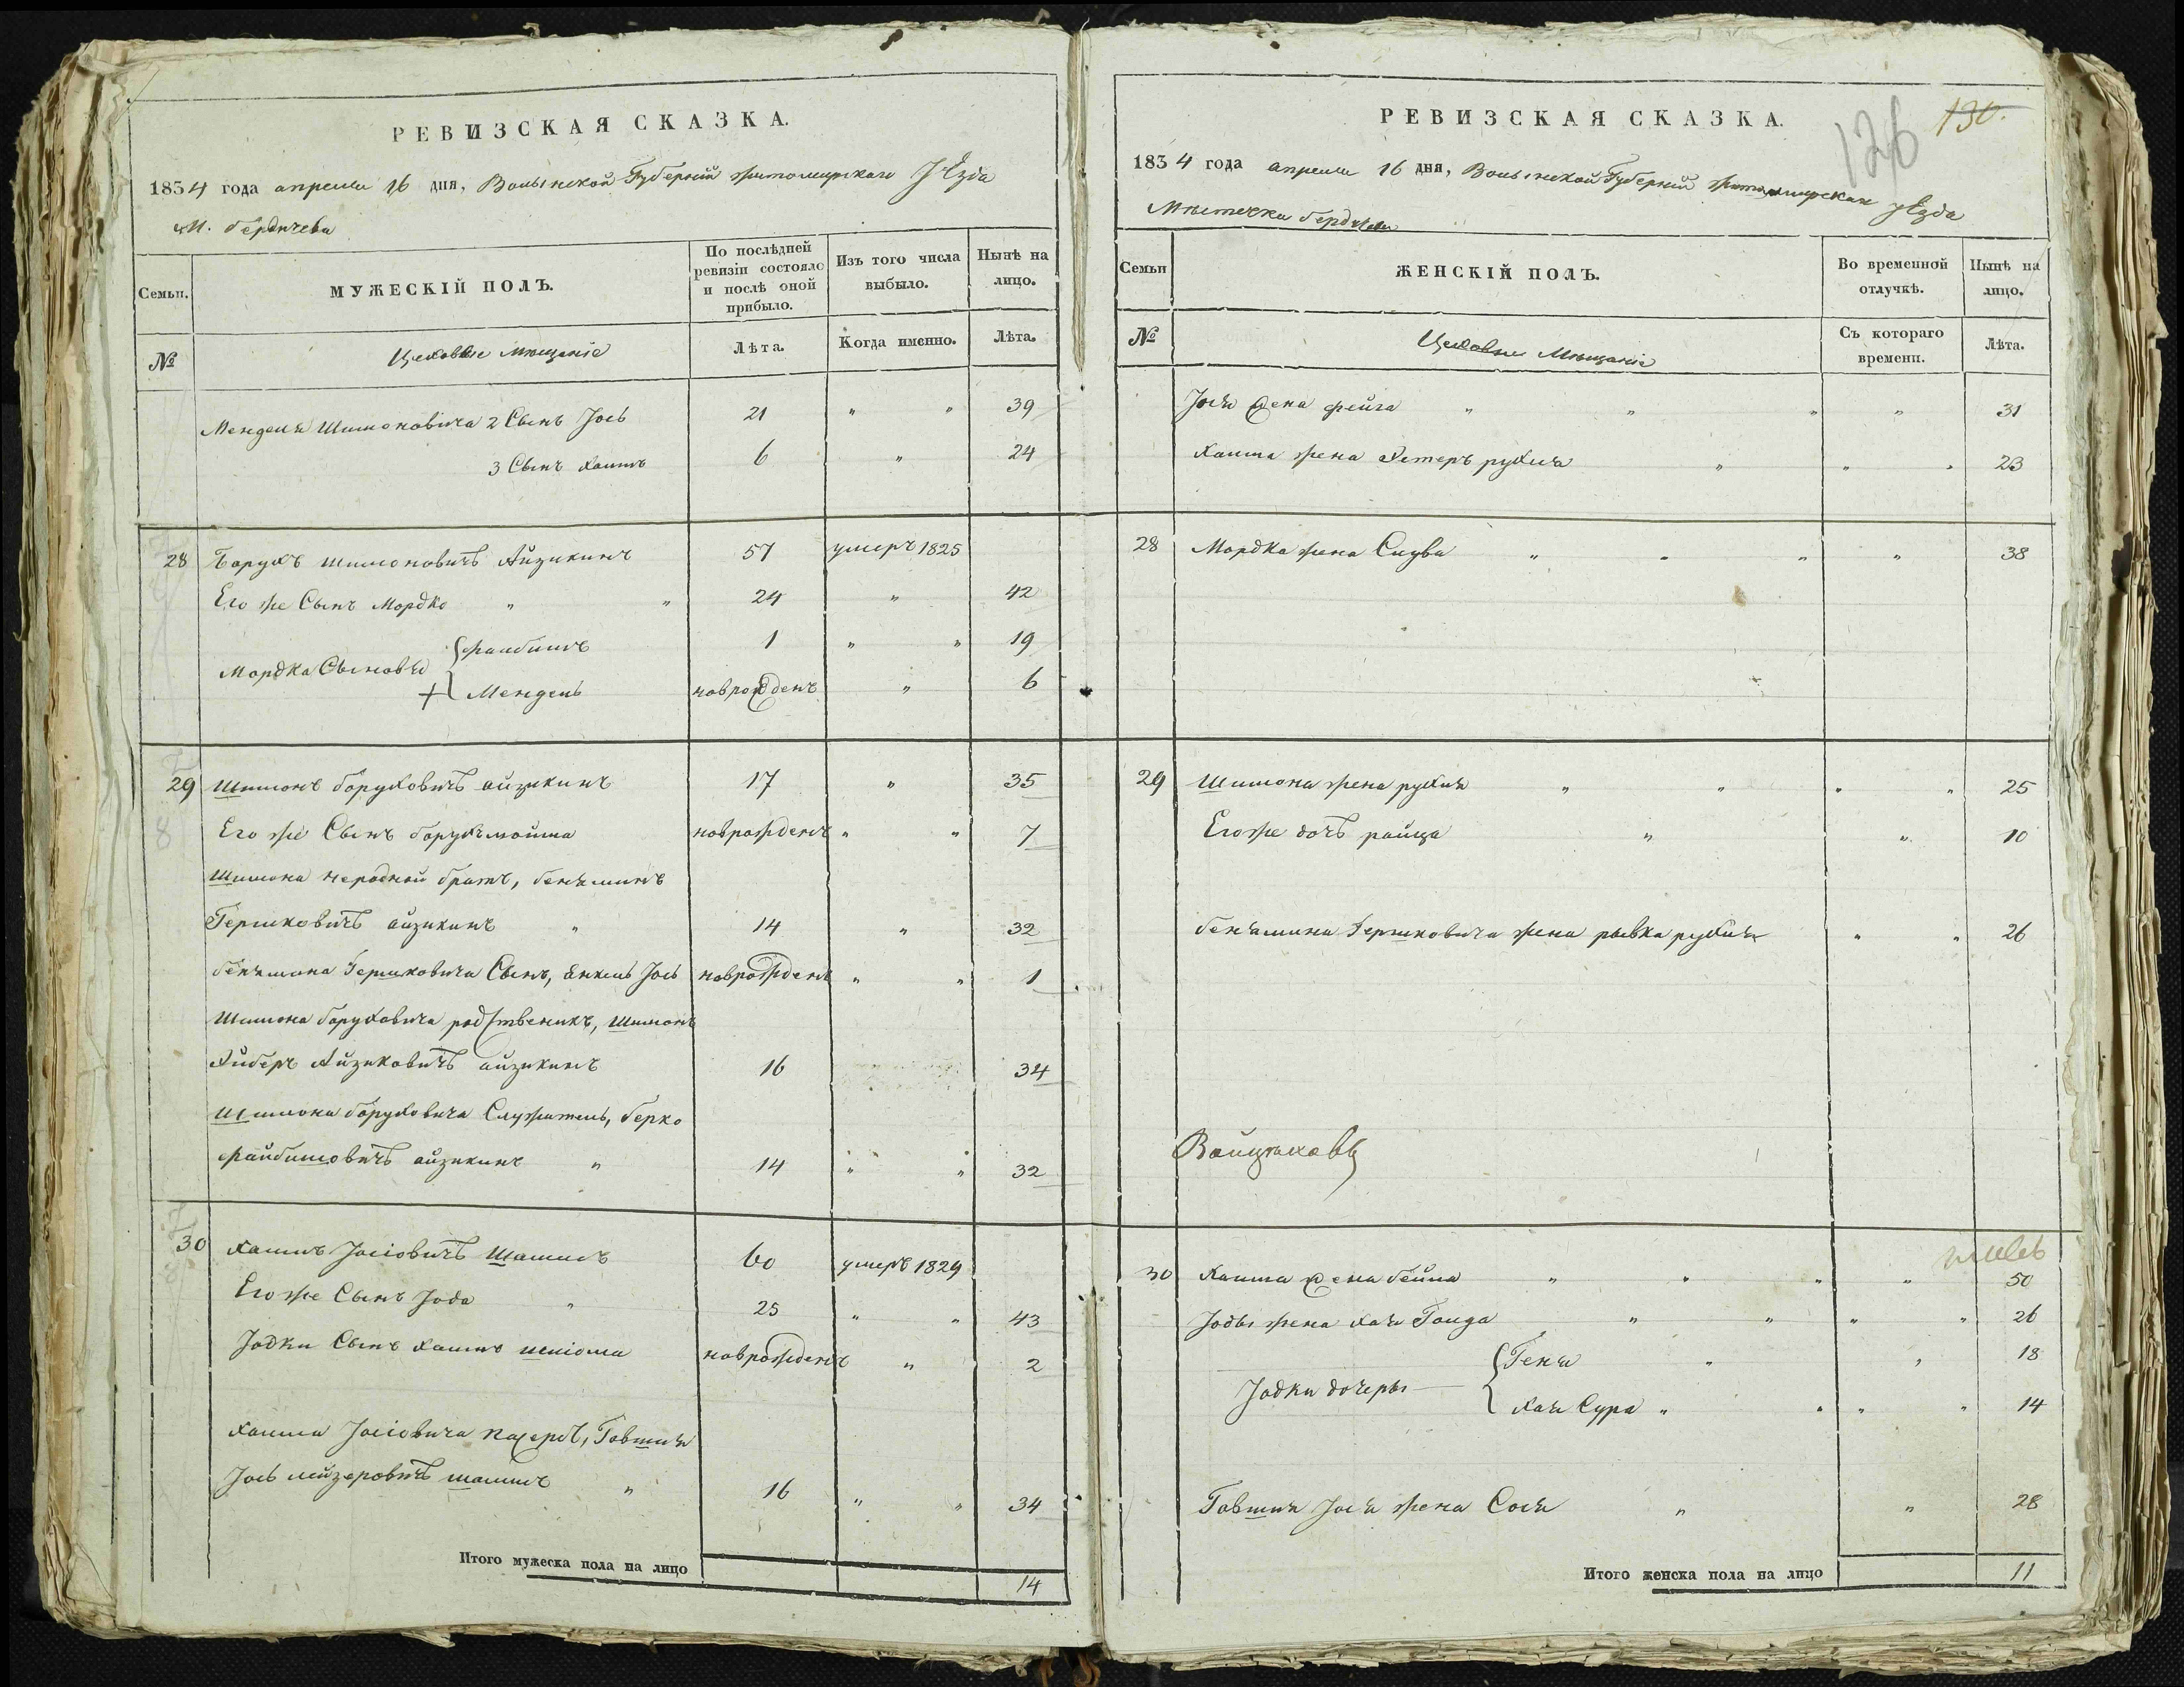 РЕВИЗСКАЯ СКАЗКА.
1834 года апреля 16 дня, Волынской Губерніи житомирскаго уѣзда
М. бердичева
Семьи.
МУЖЕСКІЙ ПОЛЪ.
По послѣдней ревизіи состояло и послѣ оной прибыло.
Изъ того числа выбыло.
Нынѣ на лицо.
№
Цеховые мещаніе
Лѣта.
Когда именно.
Лѣта.
Менделя Шимоновича 2 Сынъ Іось 21 " " 39
3 Сынъ Хаимъ 6 " 24
28 Барухъ шимоновичъ Айзикинъ 57 умеръ 1825
Его же Сынъ Мордко " " 24 " 42
Мордка Сыновья
файбишъ 1 " " 19
+ Мендель новрожденъ " 6
29 Шимонъ боруховичъ айзикинъ 17 " 35
Его же Сынъ борухъ мойша новрожденъ " " 7
Шимона неродной братъ, беньяминъ
Гершковичъ айзикинъ " 14 " 32
беньямина Гершковича Сынъ, янкель Іось новрожденъ " " 1
Шимона боруховича родственикъ, Шимонъ
Айзиковичъ айзикинъ 16 34
Шимона боруховича Служитель, берко
файбишовичъ айзикинъ " 14 " " 32
30 Хаимъ Іосіовичъ Шамисъ 60 умеръ 1829
Его же Сынъ Іода " 25 " " 43
Іодки Сынъ Хаимъ шліома новрожденъ " 2
Хаима Іосіовича Товшия
Іось лейзеровичъ шамисъ " 16 " " 34
Итого мужеска пола на лицо 14
126 130.
РЕВИЗСКАЯ СКАЗКА.
1834 года апреля 16 дня, Волынской Губерніи житомирскаго уѣзда
Мѣстечка бердичева
Семьи
ЖЕНСКІЙ ПОЛЪ.
Во временной отлучкѣ.
Нынѣ на лицо.
№
Цеховые Мещаніе
Съ котораго времени.
Лѣта.
Іося жена фейга " " " " 31
Хаима жена Хетеръ рухля " " " 23
28 Мордка жена Слува " " " " 38
29 Шимона жена рухля " " " " 25
Его же дочь райца " " 10
беньямина Гершковича жена рывка рухля " " 26
30 Хаима жена бейла " " " " 50
Іоды жена Хая Голда " " " " 26
Іодки дочеры
Геня " " 18
Хая Сура " " " " 14
Товшия Іося жена Сося " " 28
Итого женска пола на лицо 11